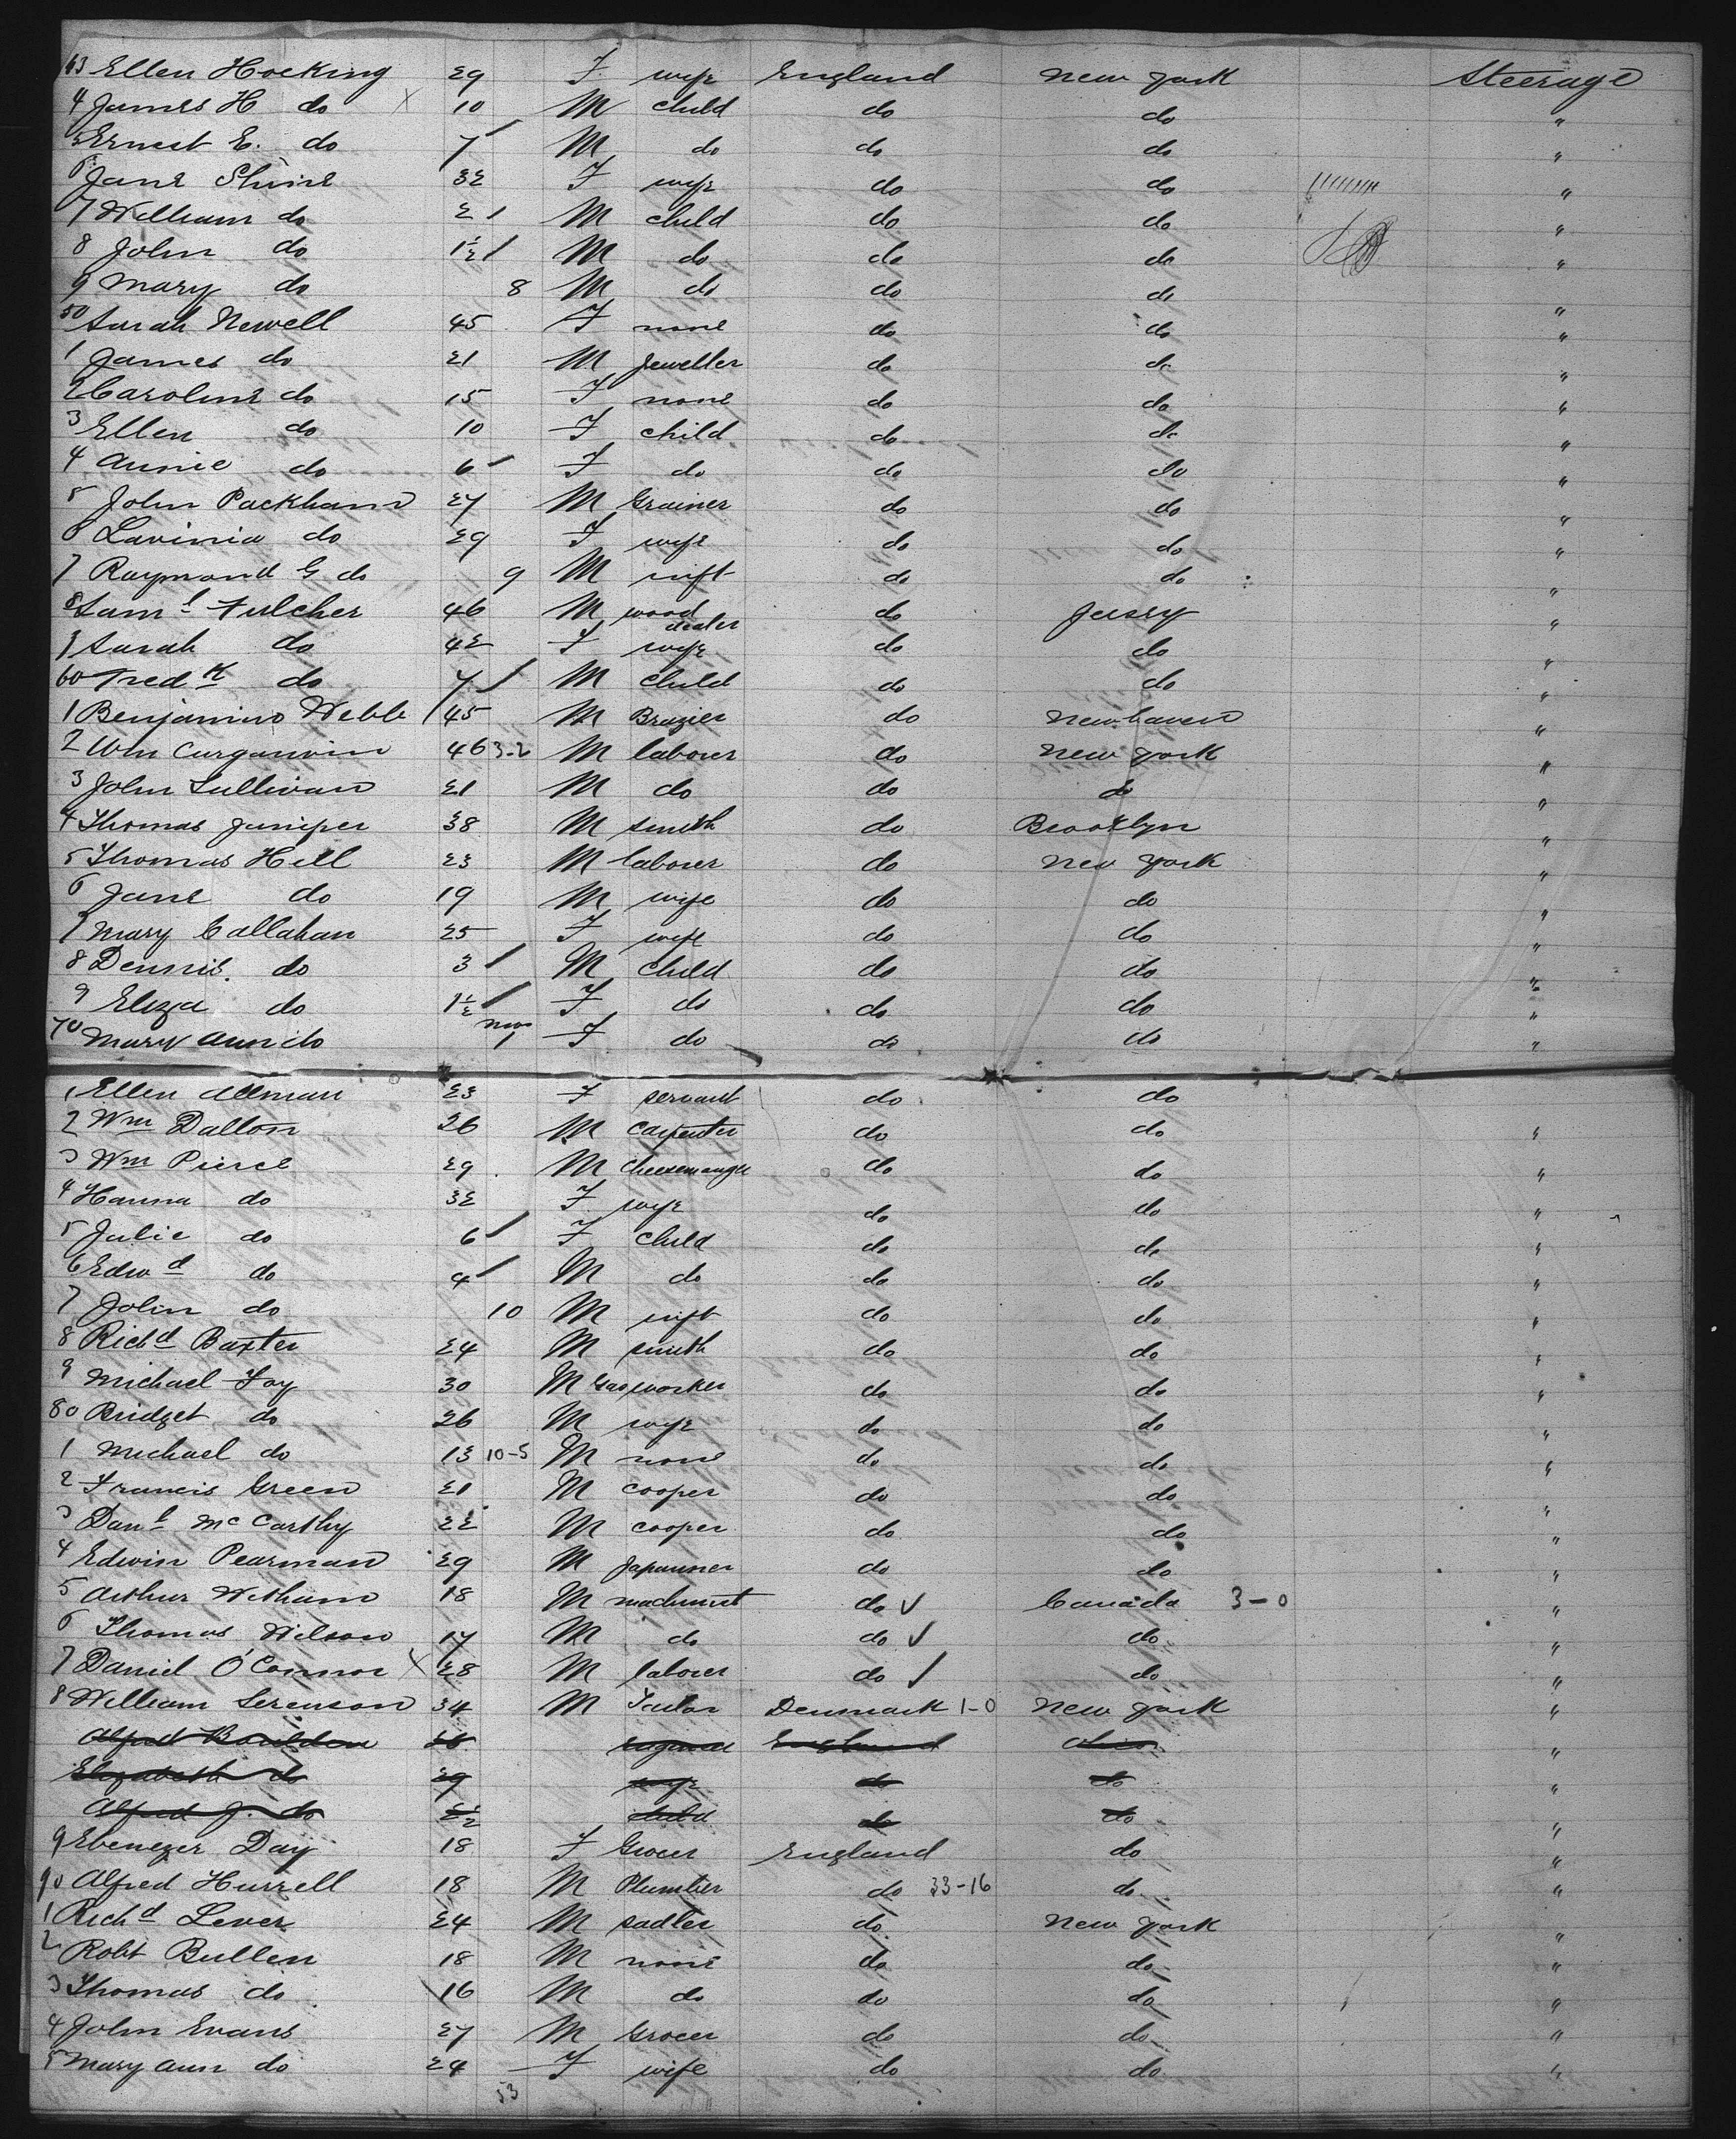 43 Ellen Hocking 29 F wife England New York Steerage
4 James H do X 10 M child do do "
5 Ernest E. do 7 M do do do "
6 Jane Shine 32 F wife do do "
7 William do 2 M child do do "
8 John do 1½ M do do do "
9 Mary do 8 M do do do "
50 Sarah Newell 45 F none do do "
1 James do 21 M Jeweller do do "
2 Caroline do 15 F none do do "
3 Ellen do 10 F child do do "
4 Annie do 6 F do do do "
5 John Packham 27 M Grainer do do "
6 Lavinia do 29 F wife do do "
7 Raymond G do 9 M inft do do "
8 Saml Fulcher 46 M wood dealer do Jersy "
9 Sarah do 42 F wife do do "
60 Fredk do 7 M child do do "
1 Benjamin Webb 45 M Brazier do Newhaven "
2 Wm Curganvin 46 3-2 M laborer do New York "
3 John Sullivan 21 M do do do "
4 Thomas Juniper 38 M smith do Brooklyn "
5 Thomas Hill 23 M laborer do New York "
6 Jane do 19 M wife do do "
7 Mary Callahan 25 F wife do do "
8 Dennis do 3 M child do do "
9 Eliza do 1½ F do do do "
70 Mary Ann do mos 1 F do do do "
1 Ellen Allman 23 F servant do do
2 Wm Dalton 26 M carpenter do do "
3 Wm Pierce 29 M cheesemonger do do "
4 Hanna do 32 F wife do do "
5 Julie do 6 F child do do "
6 Edwd do 4 M do do do "
7 John do 10 M inft do do "
8 Richd Baxter 24 M smith do do "
9 Michael Foy 30 M Gasworker do do "
80 Bridget do 26 M wife do do "
1 Michael do 13 10-5 M none do do "
2 Francis Green 21 M cooper do do "
3 Danl McCarthy 22 M cooper do do "
4 Edwin Pearman 29 M Japanner do do "
5 Arthur Witham 18 M machinist do ✓ Canada 3-0 "
6 Thomas Wilson 17 M do do ✓ do "
7 Daniel O'Connor X 28 M laborer do ✓ do "
8 William Serenson 34 M Tailor Denmark 1-0 New York "
Alfred England "
Elizabeth do 29 wife do do "
Alfred J. do child do do "
9 Ebenezer Day 18 F Grocer England do "
90 Alfred Hurrell 18 M Plumber do 33-16 do "
1 Richd Lever 24 M sadler do New York "
2 Robt Bullen 18 M none do do "
3 Thomas do 16 M do do do "
4 John Evans 27 M Grocer do do "
5 Mary Ann do 24 F wife do do "
53